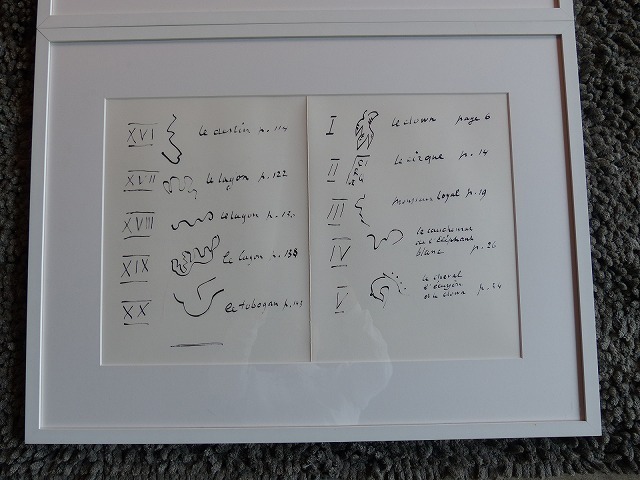 XVI le destin p. 114
XVII le lagon p. 122
XVIII le lagon
XIX le lagon p. 138
XX le tobogan
I le clown page 6
II le cirque p. 14
III monsieur loyal p. 19
IV le cauchemar
de l'éléphant
blanc p. 26
V le cheval
l'écuyère
et le clown p. 34